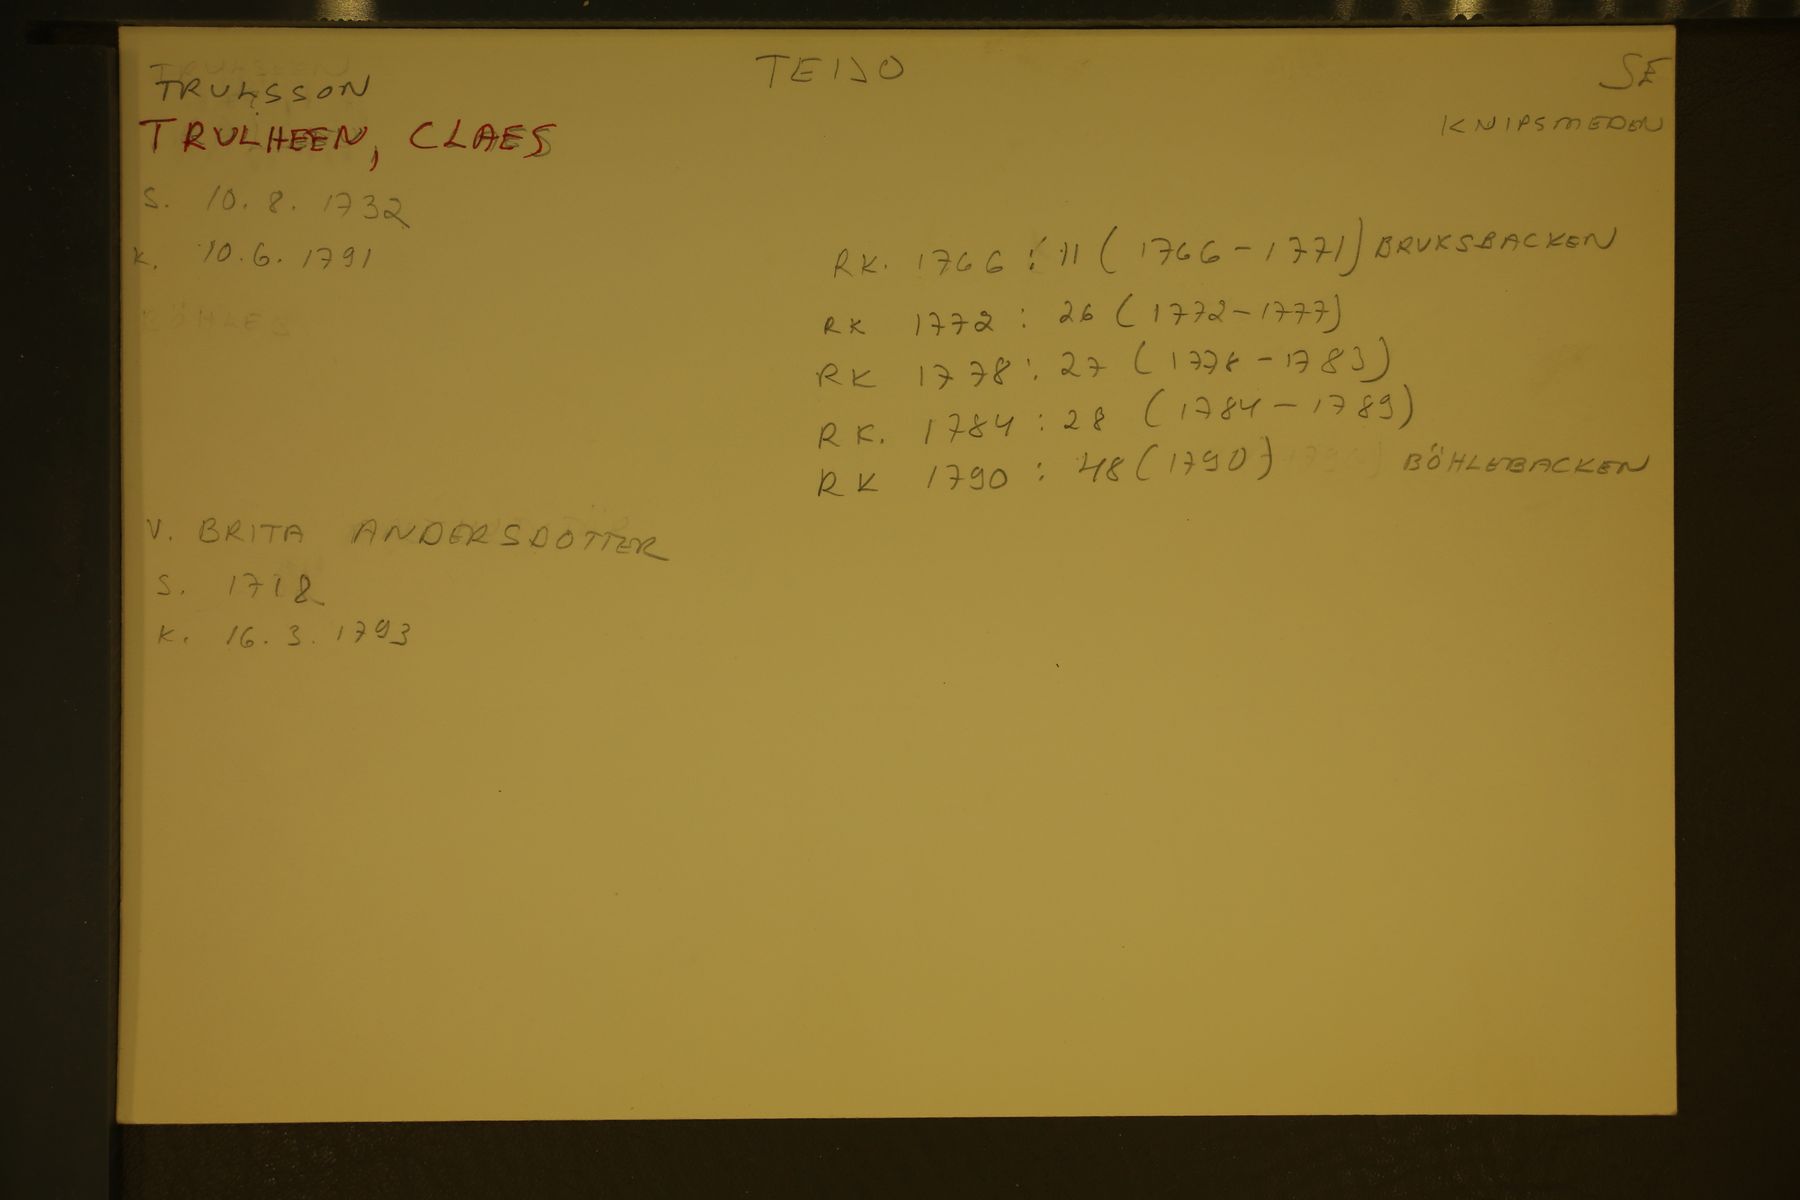 TEIJO
SE
TRULSSON
KNIPSMEDEN
TRULHEEN, CLAES
S. 10. 8. 1732
K. 10. 6. 1791
RK. 1766 : 11 ( 1766 - 1771) BRUKSBACKEN
RK 1772 : 26 ( 1772 - 1777)
BÖHLES
RK 1778 : 27 ( 1778 - 1783)
RK. 1784 : 28 ( 1784 - 1789)
RK 1790 : 48 (1790) BÖHLEBACKEN
V. BRITA ANDERSDOTTER
S. 1718
K. 16. 3. 1793